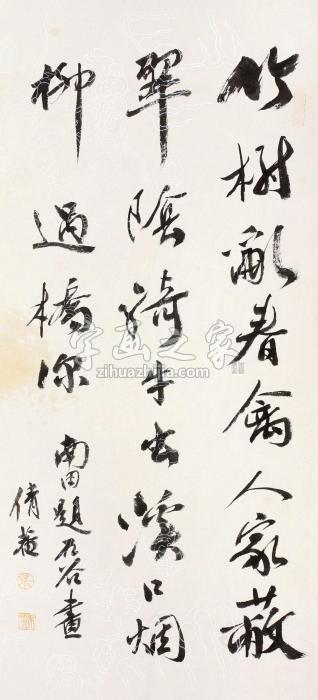 竹樹亂春禽人家蔽
翠陰騎牛出溪口烟
柳過橋深
南田題石谷畫
倩菴
字画之家
zihuazhijia.com